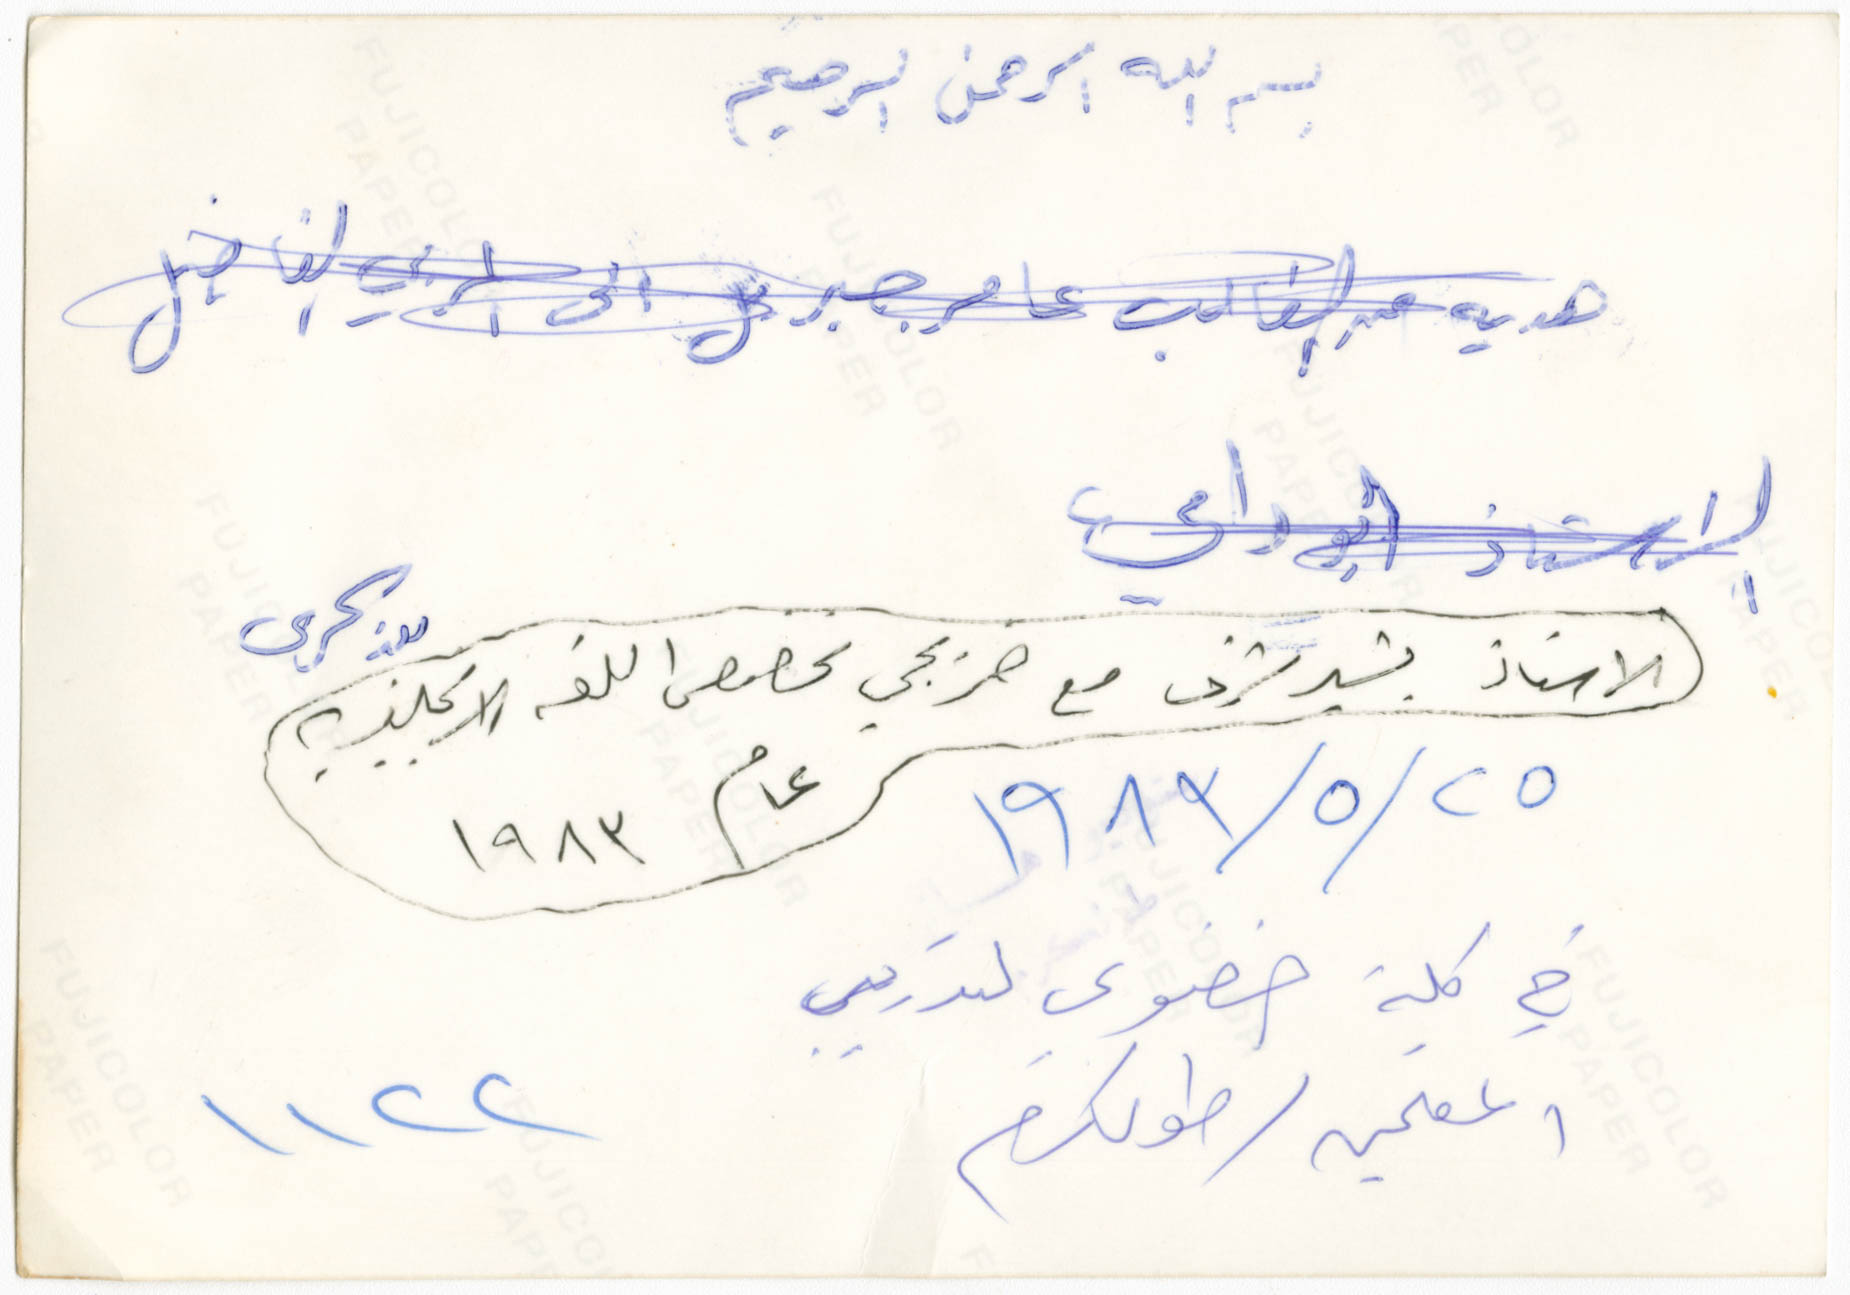 بسم الله الرحمن الرحيم
هديه من الطالب عامر جبريل الى المربي الفاضل
الاستاذ ابو رامي
للذكرى
الاستاذ بشير شرف مع خريجي تخصص اللغه الانجليزيه
عام ١٩٨٣
٢٥/٥/١٩٨٣
في كلية خضوري لتدريب
المعلمين / طولكرم
١١٢٢
FUJICOLOR PAPER